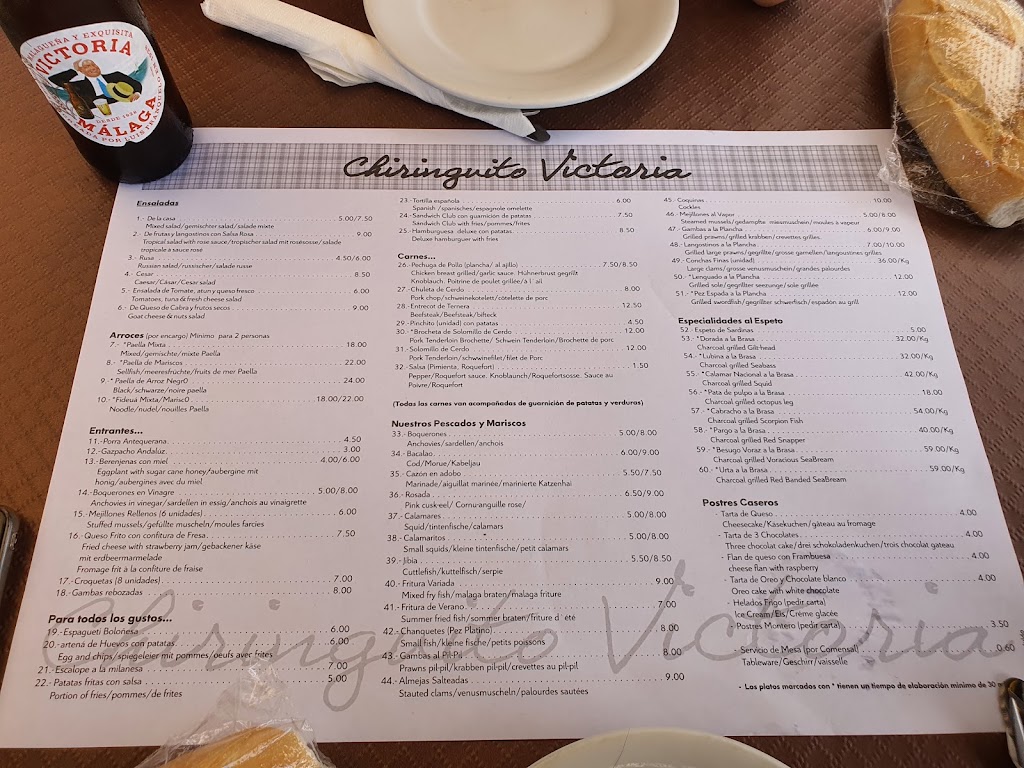 MALAGUEÑA Y EXQUISITA
VICTORIA
DESDE 1928
MÁLAGA
Chiringuito Victoria
Ensaladas
1.- De la casa 5.00/7.50
Mixed salad/gemischter salad/salade mixte
2.- De frutas y langostinos con Salsa Rosa 9.00
Tropical salad with rose sauce/tropischer salad mit rosésouse/salade
tropicale à sauce rosé
3.- Rusa 4.50/6.00
Russian salad/russischer/salade russe
4.- Cesar 8.50
Caesar/Cäsar/Cesar salad
5.- Ensalada de Tomate, atun y queso fresco 6.00
Tomatoes, tuna & fresh cheese salad
6.- De Queso de Cabra y frutos secos 9.00
Goat cheese & nuts salad
Arroces (por encargo) Minimo para 2 personas
7.- *Paella Mixta 18.00
Mixed/gemischte/mixte Paella
8.- *Paella de Mariscos 22.00
Sellfish/meeresfrüchte/fruits de mer Paella
9.-* Paella de Arroz Negr0 24.00
Black/schwarze/noire paella
10.-*Fideuá Mixta/Marisc0 18.00/22.00
Noodle/nudel/nouilles Paella
Entrantes...
11.-Porra Antequerana 4.50
12.-Gazpacho Andaluz 3.00
13.-Berenjenas con miel 4,00/6.00
Eggplant with sugar cane honey/aubergine mit
honig/aubergines avec du miel
14.-Boquerones en Vinagre 5.00/8.00
Anchovies in vinegar/sardellen in essig/anchois au vinaigrette
15.-Mejillones Rellenos (6 unidades) 6.00
Stuffed mussels/gefüllte muscheln/moules farcies
16.-Queso Frito con confitura de Fresa 7.50
Fried cheese with strawberry jam/gebackener käse
mit erdbeermarmelade
Fromage frit à la confiture de fraise
17.-Croquetas (8 unidades) 7.00
18.-Gambas rebozadas 8.00
Para todos los gustos...
19.-Espagueti Boloñesa 6.00
20.-artena de Huevos con patatas 6.00
Egg and chips/spiegeleier mit pommes/oeufs avec frites
21.-Escalope a la milanesa 7.00
22.-Patatas fritas con salsa 5.00
Portion of fries/pommes/de frites
23.-Tortilla española 6.00
Spanish /spanisches/espagnole omelette
24.-Sandwich Club con guarnición de patatas 7.50
Sandwich Club with fries/pommes/frites
25.-Hamburguesa deluxe con patatas 8.50
Deluxe hamburguer with fries
Carnes...
26.-Pechuga de Pollo (plancha/ al ajillo) 7.50/8.50
Chicken breast grilled/garlic sauce. Hühnerbrust gegrilt
Knoblauch. Poitrine de poulet grillée/à l´ail
27.-Chuleta de Cerdo 8.00
Pork chop/schweinekotelett/côtelette de porc
28.-Entrecot de Ternera 12.50
Beefsteak/Beefsteak/bifteck
29.-Pinchito (unidad) con patatas 4.50
30.-*Brocheta de Solomillo de Cerdo 12.00
Pork Tenderloin Brochette/ Schwein Tenderloin/Brochette de porc
31.-Solomillo de Cerdo 12.00
Pork Tenderloin/schwwinefilet/filet de Porc
32.-Salsa (Pimienta, Roquefort) 1.50
Pepper/Roquefort sauce. Knoblaunch/Roquefortsosse. Sauce au
Poivre/Roquefort
(Todas las carnes van acompañadas de guarnición de patatas y verduras)
Nuestros Pescados y Mariscos
33.-Boquerones 5.00/8.00
Anchovies/sardellen/anchois
34.-Bacalao 6.00/9.00
Cod/Morue/Kabeljau
35.-Cazón en adobo 5.50/7.50
Marinade/aiguillat marinée/marinierte Katzenhai
36.-Rosada 6.50/9.00
Pink cusk-eel/ Cornuranguille rose/
37.-Calamares 5.00/8.00
Squid/tintenfische/calamars
38.-Calamaritos 5.00/8.00
Small squids/kleine tintenfische/petit calamars
39.-Jibia 5.50/8.50
Cuttlefish/kuttelfisch/serpie
40.-Fritura Variada 9.00
Mixed fry fish/malaga braten/malaga friture
41.-Fritura de Verano 7.00
Summer fried fish/sommer braten/friture d´eté
42.-Chanquetes (Pez Platino) 8.00
Small fish/kleine fische/petits poissons
43.-Gambas al Pil-Pil 8.00
Prawns pil-pil/krabben pil-pil/crevettes au pil-pil
44.-Almejas Salteadas 9.00
Stauted clams/venusmuscheln/palourdes sautées
45.-Coquinas 10.00
Cockles
46.-Mejillones al Vapor 5.00/8.00
Steamed mussels/gedampfte miesmuschein/moules à vapeur
47.-Gambas a la Plancha 6.00/9.00
Grilled prawns/grilled krabben/crevettes grilles.
48.-Langostinos a la Plancha 7.00/10.00
Grilled large prawns/gegrillte/grosse garnellen/langoustines grilles
49.-Conchas Finas (unidad) 36.00/Kg
Large clams/grosse venusmuschein/grandes palourdes
50.-*Lenguado a la Plancha 12.00
Grilled sole/gegrillter seezunge/sole grillée
51.-*Pez Espada a la Plancha 12.00
Grilled swordfish/gegrillter schwerfisch/espadón au grill
Especialidades al Espeto
52.-Espeto de Sardinas 5.00
53.-*Dorada a la Brasa 32.00/Kg
Charcoal grilled Gilt-head
54.-*Lubina a la Brasa 32.00/Kg
Charcoal grilled Seabass
55.-*Calamar Nacional a la Brasa 42.00/Kg
Charcoal grilled Squid
56.-*Pata de pulpo a la Brasa 18.00
Charcoal grilled octopus leg
57.-*Cabracho a la Brasa 54.00/Kg
Charcoal grilled Scorpion Fish
58.-*Pargo a la Brasa 40.00/Kg
Charcoal grilled Red Snapper
59.-*Besugo Voraz a la Brasa 59.00/Kg
Charcoal grilled Voracious SeaBream
60.-*Urta a la Brasa 59.00/Kg
Charcoal grilled Red Banded SeaBream
Postres Caseros
- Tarta de Queso 4.00
Cheesecake/Kasekuchen/gâteau au fromage
- Tarta de 3 Chocolates 4.00
Three chocolat cake/drei schokoladenkuchen/trois chocolat gateau
- Flan de queso con Frambuesa 4.00
cheese flan with raspberry
- Tarta de Oreo y Chocolate blanco 4.00
Oreo cake with white chocolate
- Helados Frigo (pedir carta)
Ice Cream/Eis/Crème glacée
- Postres Montero (pedir carta) 3.50
- Servicio de Mesa (por Comensal) 0.60
Tableware/Geschirr/vaisselle
- Los platos marcados con * tienen un tiempo de elaboración minimo de 30
Chiringuito Victoria